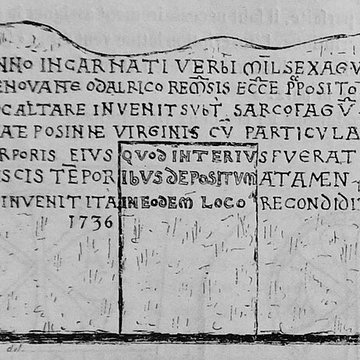 NNO INCARNATI VERBI MILSEXAGV
ENOVANTE ODALRICO REMSIS ECCE PPOSITO
OCALTARE INVENIT SVBT SARCOFAGV
ATE POSINNE VIRGINIS CV PARTICVLA
RPORIS EIVS QVOD INTERIVS FVERAT
ISCIS TEPORIBVS DEPOSITVM ATAMEN
INVENIT ITA IN EODEM LOCO RECONDIDIT
1736
del.